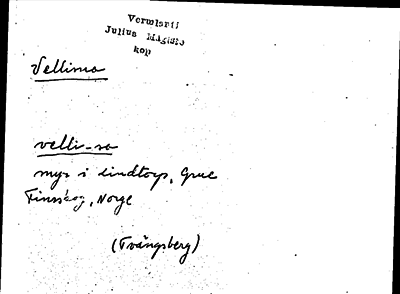 Vermlarii
Julius Mägiste
kop
Vellimso
velli-so
myr i Lindtorp, Grue
Finnskog, Norge
(Tvängsberg)